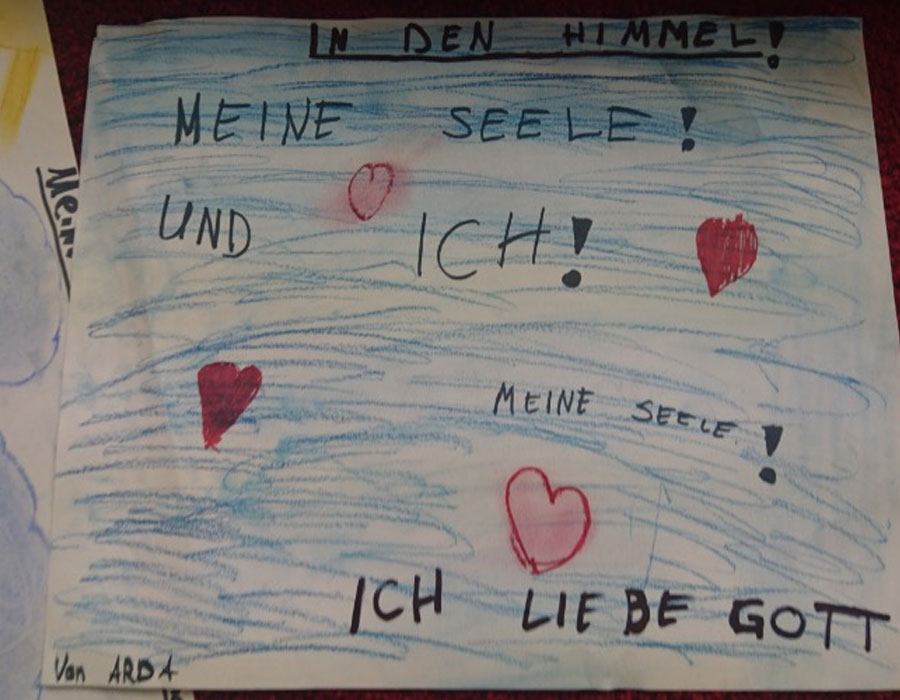 IN DEN HIMMEL!
MEINE SEELE!
UND ICH!
MEINE SEELE!
ICH LIEBE GOTT
Von ARDA